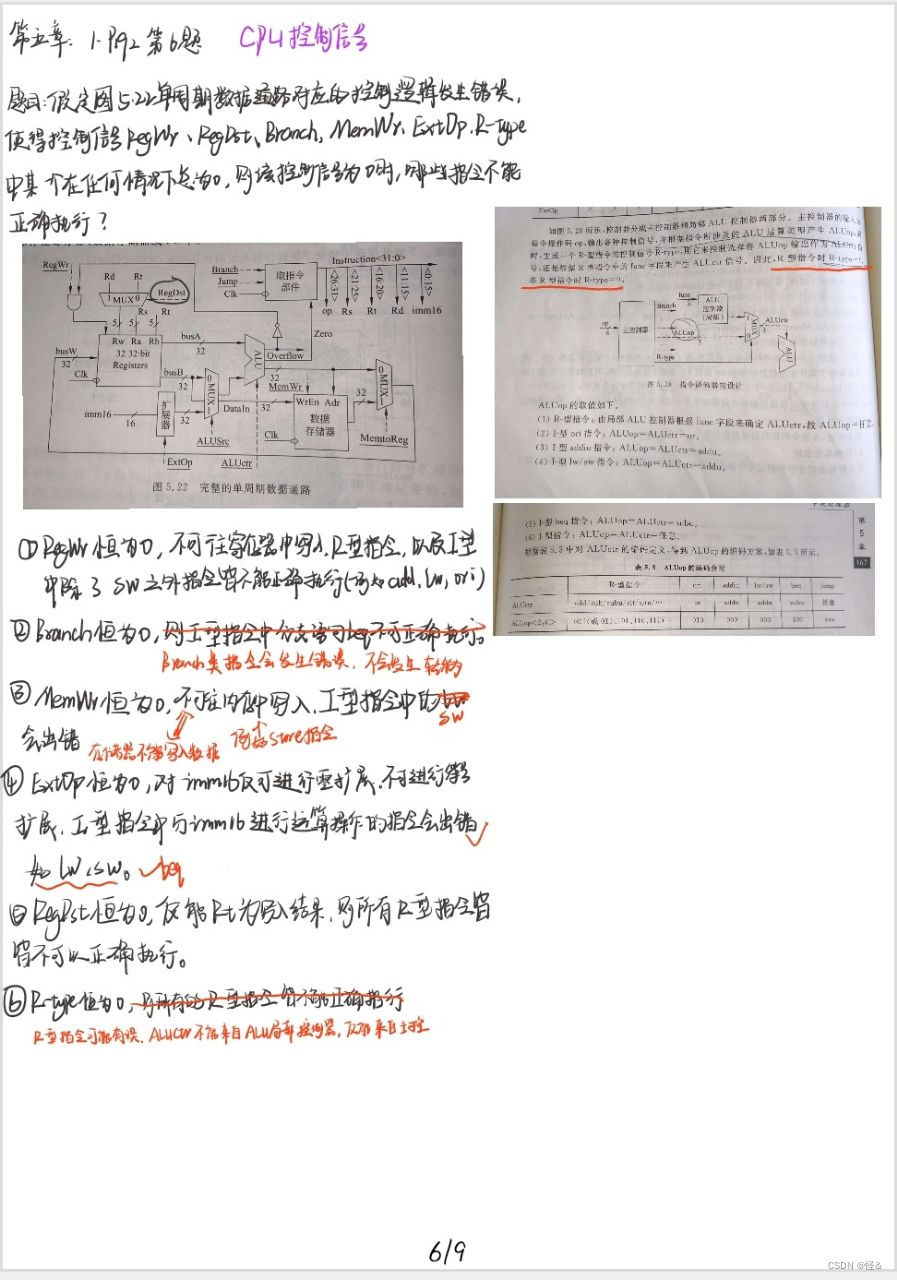 第五章: 1. P192 第6题 CPU控制信号
题目:假定图5.22单周期数据通路对应的控制逻辑发生错误,
使得控制信号RegWr、RegDst、Branch、MemWr、ExtOp、R-type
中某个在任何情况下总为0,则该控制信号为0时,哪些指令不能
正确执行?
RegWr
Rd Rt
1 MUX 0
RegDst
Rs Rt
5 5 5
Rw Ra Rb
32 32-bit
Registers
busW
32
Clk
busA
32
busB
32
imm16
16
扩展器
32
ExtOp
0
MUX
1
ALUSrc
ALU
ALUctr
Branch
Jump
Clk
取指令
部件
Zero
Overflow
Instruction<31:0>
<26:31>
<21:25>
<16:20>
<11:15>
<0:15>
op Rs Rt Rd imm16
32
MemWr
DataIn
32
WrEn Adr
数据
存储器
Clk
32
0
MUX
1
MemtoReg
图 5.22 完整的单周期数据通路
如图 5.28 所示,控制器分成主控制器和局部 ALU 控制器两部分。主控制器的输入为
指令操作码 op,输出各种控制信号,并根据指令所涉及的 ALU 运算类型产生 ALUop,同
时,生成一个 R-型指令的控制信号 R-type,用它来控制选择将 ALUop 输出作为 ALUctr 信
号,还是根据 R 型指令中的 func 字段来产生 ALUctr 信号。因此,R 型指令时 R-type=1,
非 R 型指令时 R-type=0。
op
6
主控制器
Branch
func
6
ALU
控制器
(局部)
ALUop
R-type
MUX
ALUctr
3
ALU
图 5.28 指令译码器的设计
ALUop 的取值如下。
(1) R-型指令:由局部 ALU 控制器根据 func 字段来确定 ALUctr,故 ALUop=任意。
(2) I-型 ori 指令:ALUop=ALUctr=or。
(3) I-型 addiu 指令:ALUop=ALUctr=addu。
(4) I-型 lw/sw 指令:ALUop=ALUctr=addu。
(5) I-型 beq 指令:ALUop=ALUctr=subu。
(6) J-型指令:ALUop=ALUctr=任意。
根据表 5.3 中对 ALUctr 的编码定义,得到 ALUop 的编码方案,如表 5.5 所示。
第
5
章
167
表 5.5 ALUop 的编码分配
R-型指令 ori addiu lw/sw beq jump
ALUctr add/sub/subu/slt/sltu/… or addu addu subu 任意
ALUop<2:0> 010 000 000 100 xxx
①RegWr恒为0,不可往寄存器中写入,R型指令,以及I型
中除了SW之外指令皆不能正确执行(例如add,lw,ori)
②Branch恒为0,则I型指令中分支语句beq不可正确执行。
Branch类指令会发生错误,不会发生转移
③MemWr恒为0,不可往内存中写入,I型指令中的lw
SW
会出错
存储器不能写入数据 例如Store指令
④ExtOp恒为0,对imm16仅可进行零扩展,不可进行符号
扩展,I型指令中与imm16进行运算操作的指令会出错
如lw、sw。beq
⑤RegDst恒为0,仅能Rt为写入结果,则所有R型指令皆
皆不可以正确执行。
⑥R-type恒为0,则所有的R型指令皆不能正确执行
R型指令可能有误,ALUctr不能来自ALU局部控制器,反而来自主控
6/9
CSDN @怪&